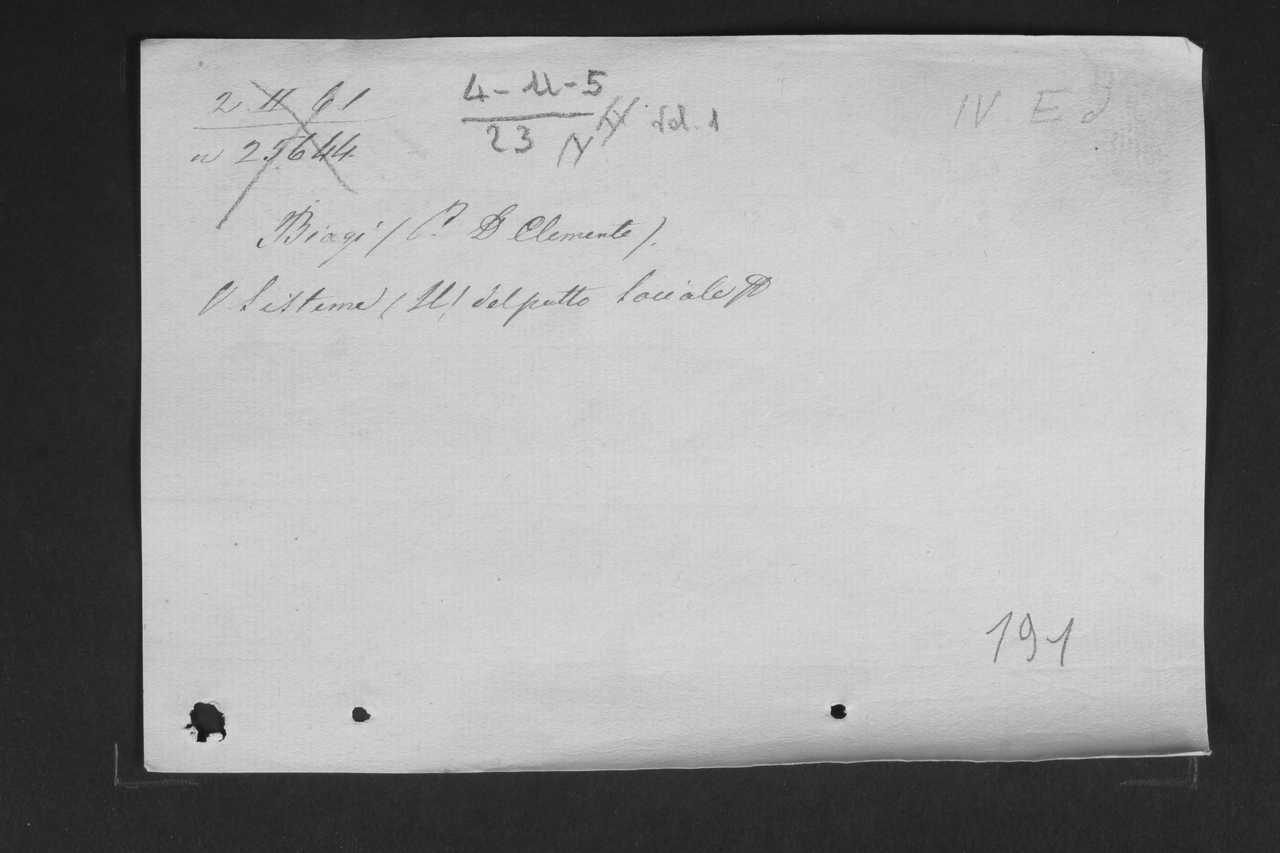 2 II 61
n 25644
4-11-5
23
Vol. 1
IV E
Biagi (P. D. Clemente).
V Sistema (Il) del patto Sociale
191